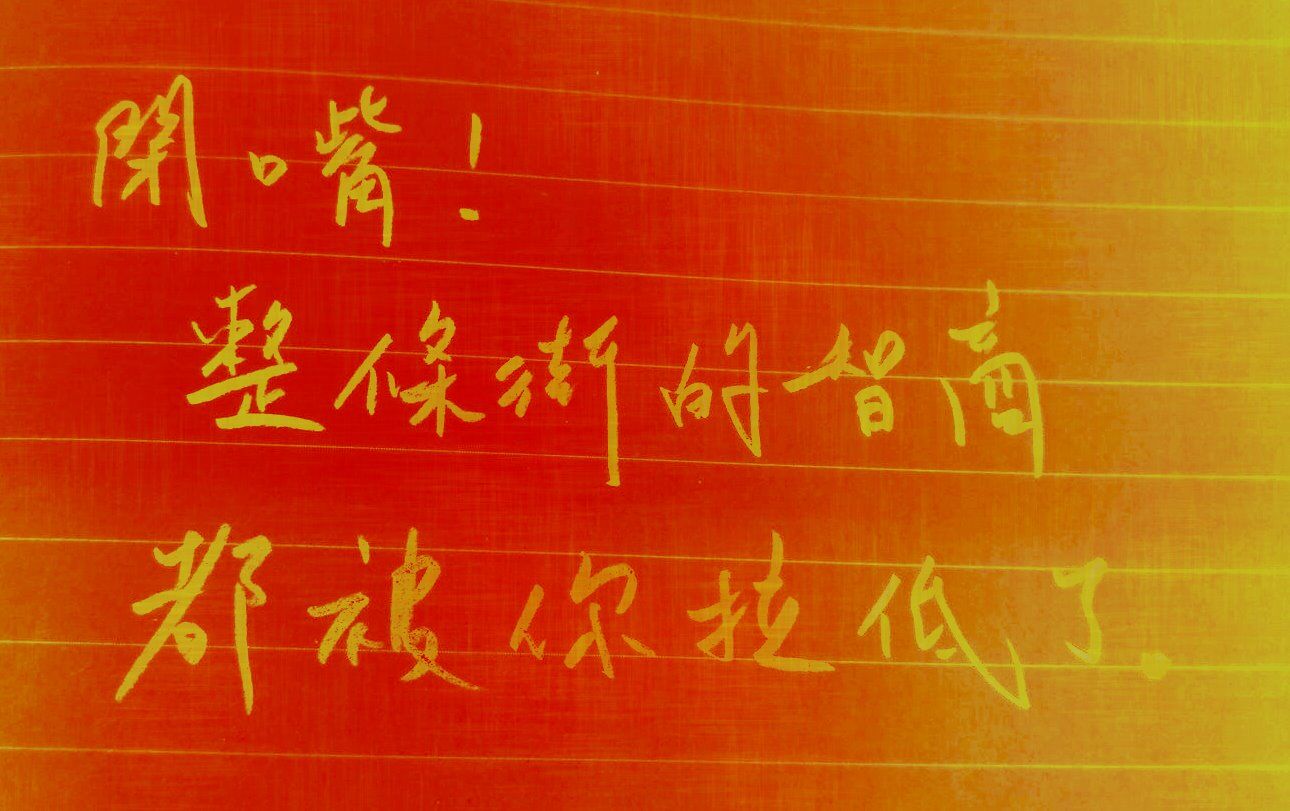 閉嘴!
整條街的智商
都被你拉低了.